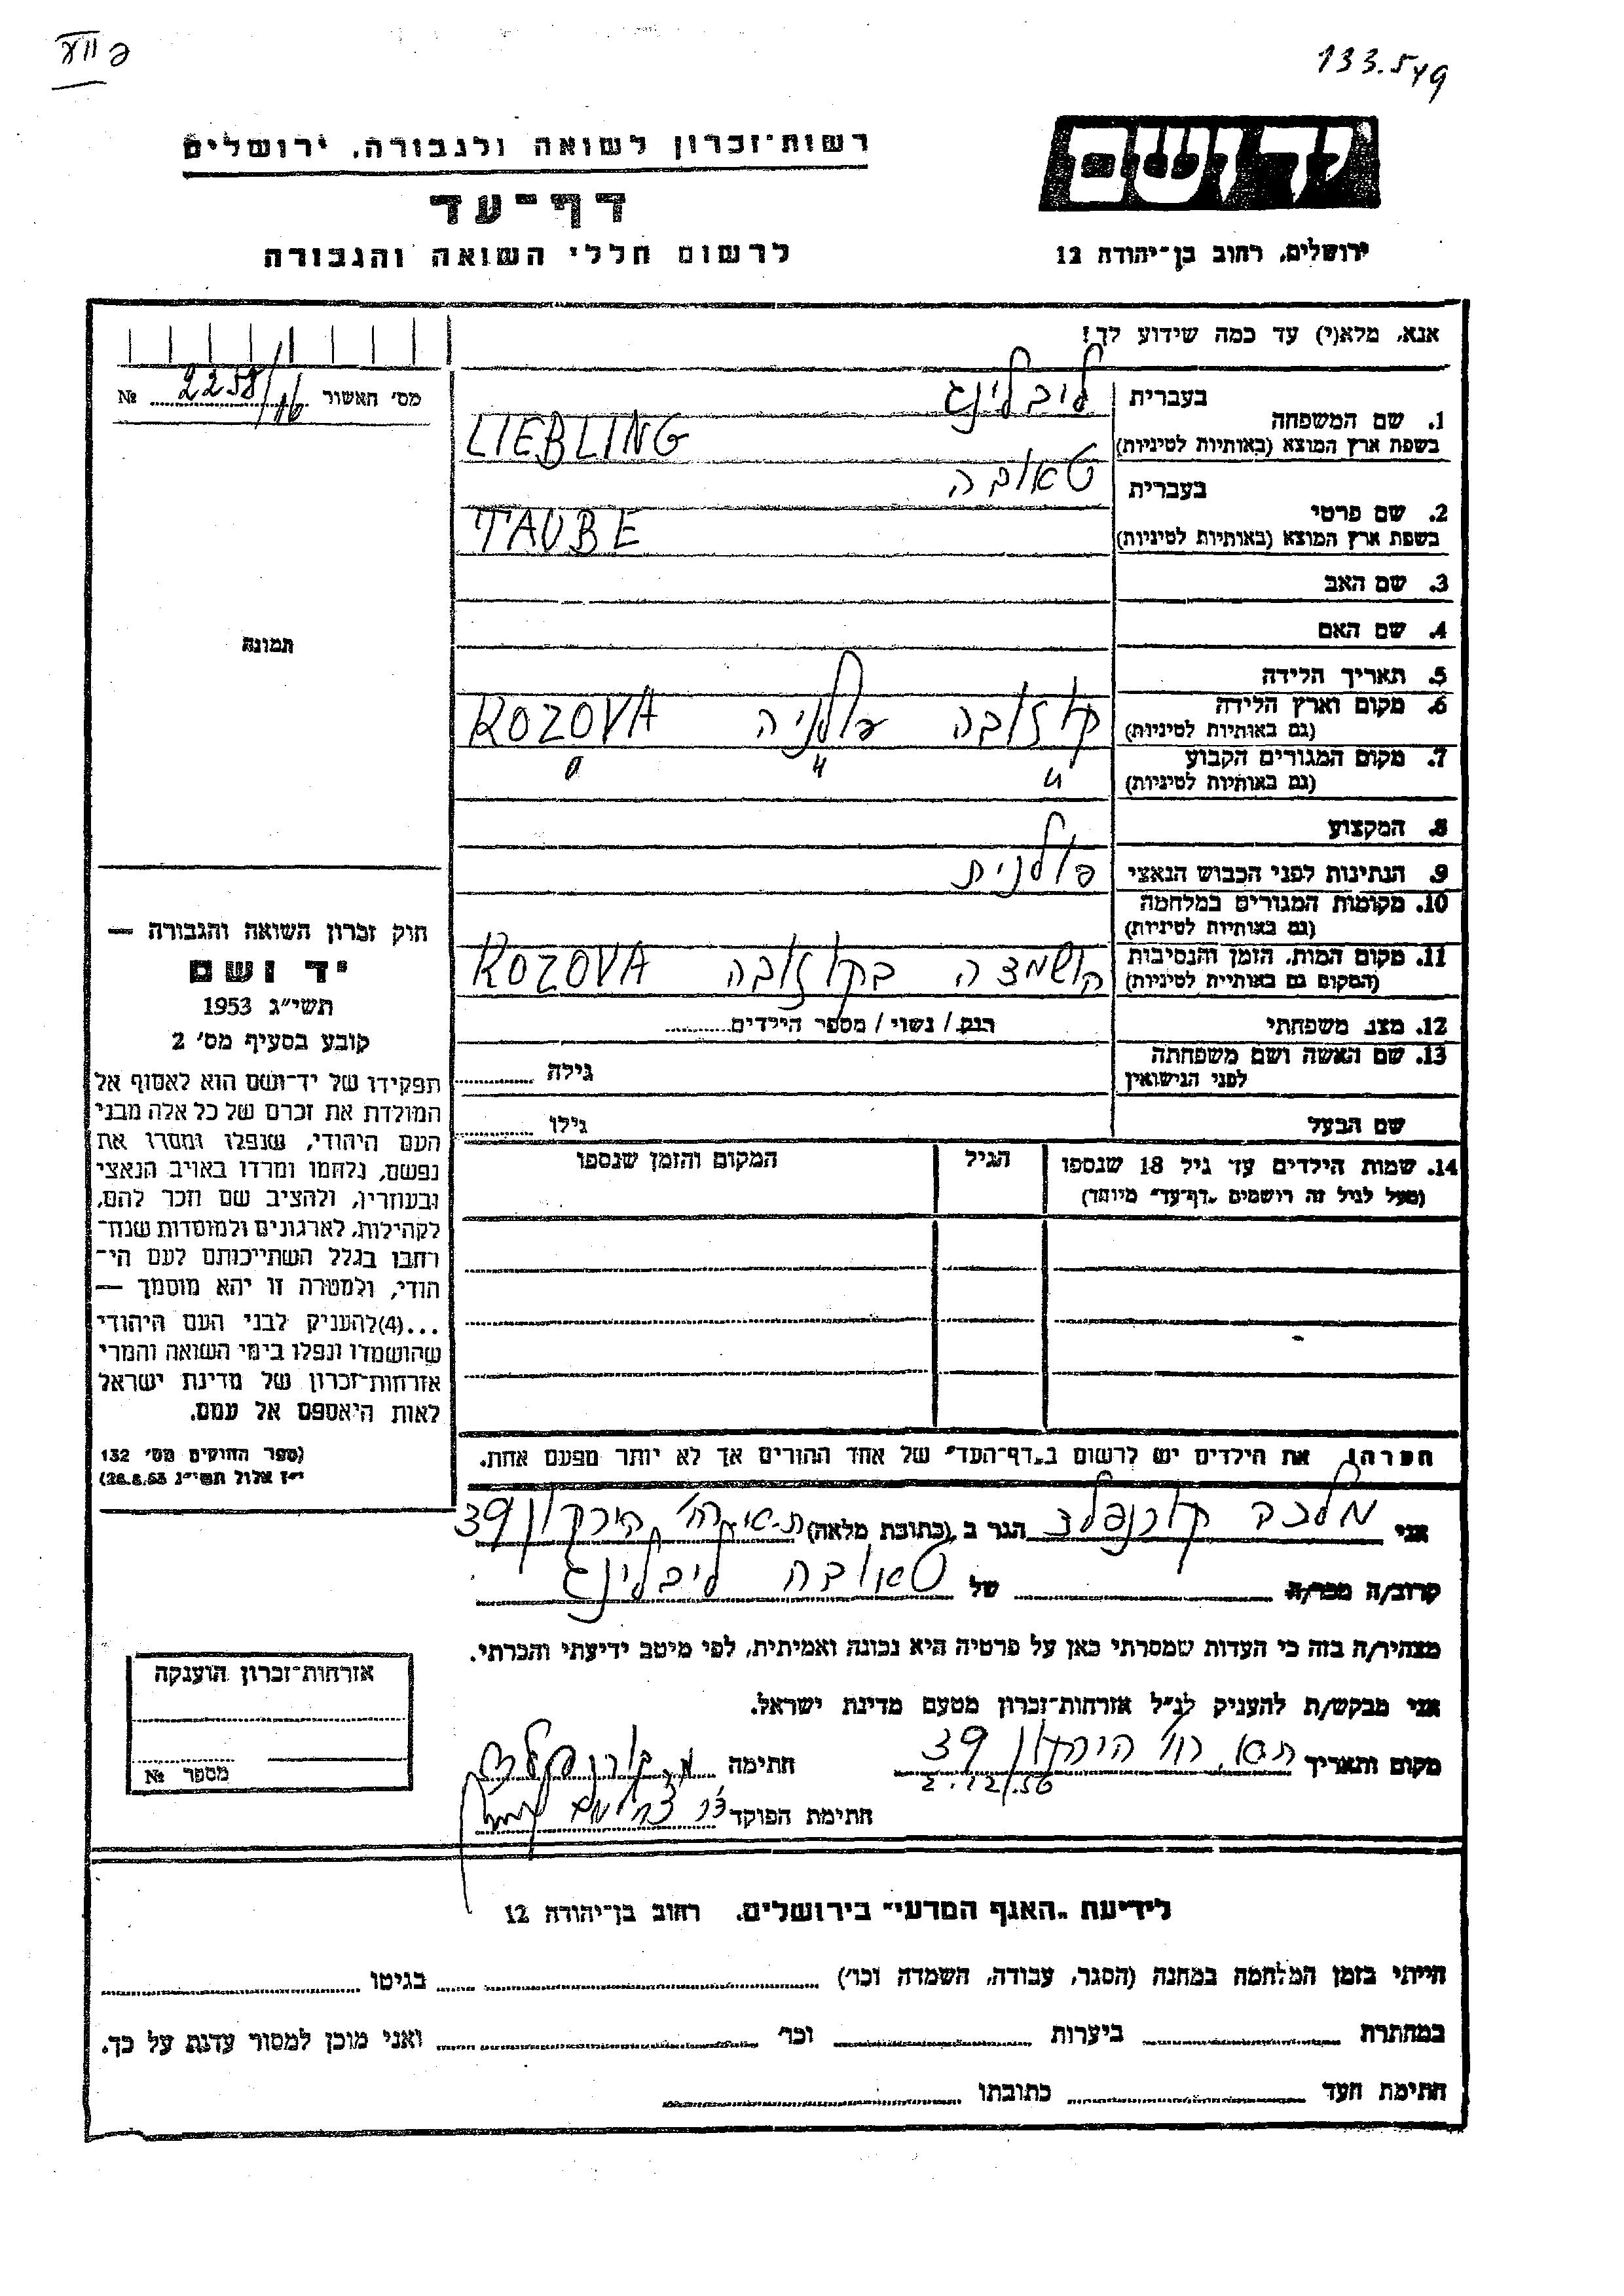 133.549
רשות־זכרון לשואה ולגבורה, ירושלים
יד ושם
דף־עד
לרשום חללי השואה והגבורה
ירושלים, רחוב בן־יהודה 12
אנא, מלא(י) עד כמה שידוע לך!
מס׳ האשור 2258/16 №
1. שם המשפחה
בעברית ליבלינג
בשפת ארץ המוצא (באותיות לטיניות) LIEBLING
2. שם פרטי
בעברית טאובה
בשפת ארץ המוצא (באותיות לטיניות) TAUBE
3. שם האב
4. שם האם
תמונה
5. תאריך הלידה
6. מקום וארץ הלידה
(גם באותיות לטיניות) קוזובה פולניה KOZOVA
7. מקום המגורים הקבוע
(גם באותיות לטיניות) " " "
8. המקצוע
9. הנתינות לפני הכבוש הנאצי פולנית
10. מקומות המגורים במלחמה
(גם באותיות לטיניות)
11. מקום המות, הזמן והנסיבות
(המקום גם באותיות לטיניות) הושמצה בקוזובה KOZOVA
12. מצב משפחתי רווק / נשוי / מספר הילדים
13. שם האשה ושם משפחתה
לפני הנישואין גילה
שם הבעל גילו
14. שמות הילדים עד גיל 18 שנספו
(מעל לגיל זה רושמים „דף־עד״ מיוחד)
הגיל
המקום והזמן שנספו
חוק זכרון השואה והגבורה —
יד ושם
תשי״ג 1953
קובע בסעיף מס׳ 2
תפקידו של יד־ושם הוא לאסוף אל
המולדת את זכרם של כל אלה מבני
העם היהודי, שנפלו ומסרו את
נפשם, נלחמו ומרדו באויב הנאצי
ובעוזריו, ולהציב שם וזכר להם,
לקהילות, לארגונים ולמוסדות שנח־
רחבו בגלל השתייכותם לעם הי־
הודי, ולמטרה זו יהא מוסמך —
...(4)להעניק לבני העם היהודי
שהושמדו ונפלו בימי השואה והמרי
אזרחות־זכרון של מדינת ישראל
לאות היאספם אל עמם.
(ספר החוקים מס׳ 132
י״ז אלול תשי״ג 28.8.53)
הערה! את הילדים יש לרשום ב„דף־העד״ של אחד ההורים אך לא יותר מפעם אחת.
אני מלכה קורנפלד הגר ב (כתובת מלאה) ת-א רח׳ הירקון 39
קרוב/ה מכר/ה של טאובה ליבלינג
מצהיר/ה בזה כי העדות שמסרתי כאן על פרטיה היא נכונה ואמיתית, לפי מיטב ידיעתי והכרתי.
אני מבקש/ת להעניק לנ״ל אזרחות־זכרון מטעם מדינת ישראל.
מקום ותאריך ת-א, רח׳ הירקון 39
2.12.56
חתימה מ. קורנפלד
חתימת הפוקד
אזרחות־זכרון הוענקה
מספר №
לידיעת „האגף המדעי״ בירושלים, רחוב בן־יהודה 12
הייתי בזמן המלחמה במחנה (הסגר, עבודה, השמדה וכו׳) בגיטו
במחתרת ביערות וכו׳ ואני מוכן למסור עדות על כך.
חתימת העד כתובתו